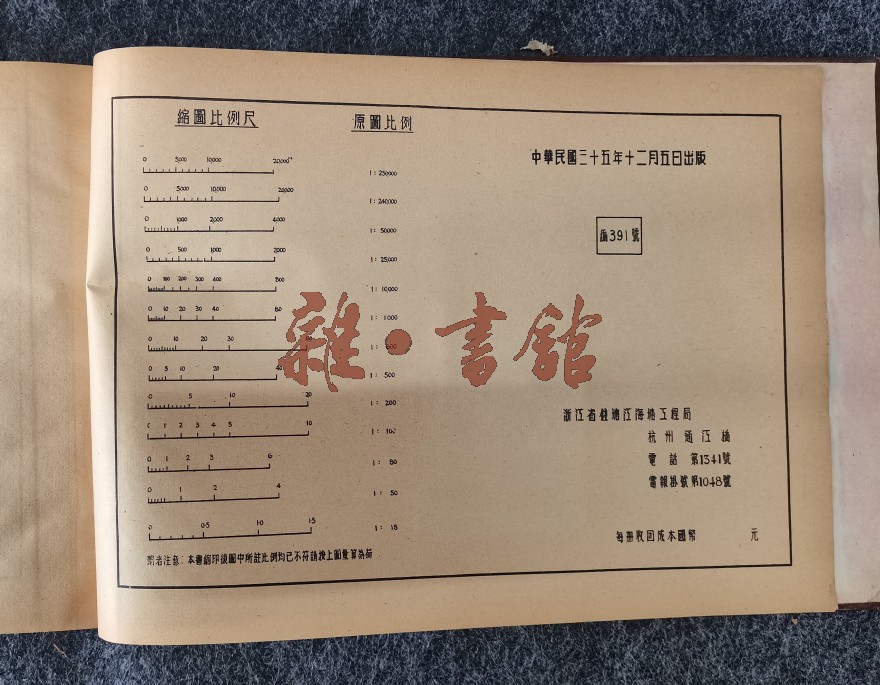 縮圖比例尺
0 5000 10,000 20,000
0 5000 10,000 20,000
0 1000 2,000 4000
0 500 1000 2000
0 100 200 300 400 800
0 10 20 30 40 80
0 10 20 30
0 5 10 20 40
0 5 10 20
0 1 2 3 4 5 10
0 1 2 3 6
0 1 2 4
0 0.5 1.0 1.5
原圖比例
1: 250,000
1: 240,000
1: 50,000
1: 25,000
1: 10,000
1: 1000
1: 500
1: 200
1: 100
1: 80
1: 50
1: 15
閱者注意:本書縮印後圖中所註比例均已不符請按上圖量算為荷
中華民國三十五年十二月五日出版
編391號
浙江省錢塘江海塘工程局
杭州 通江橋
電話 第1341號
電報掛號第1048號
每冊收回成本國幣 元
雜·書館